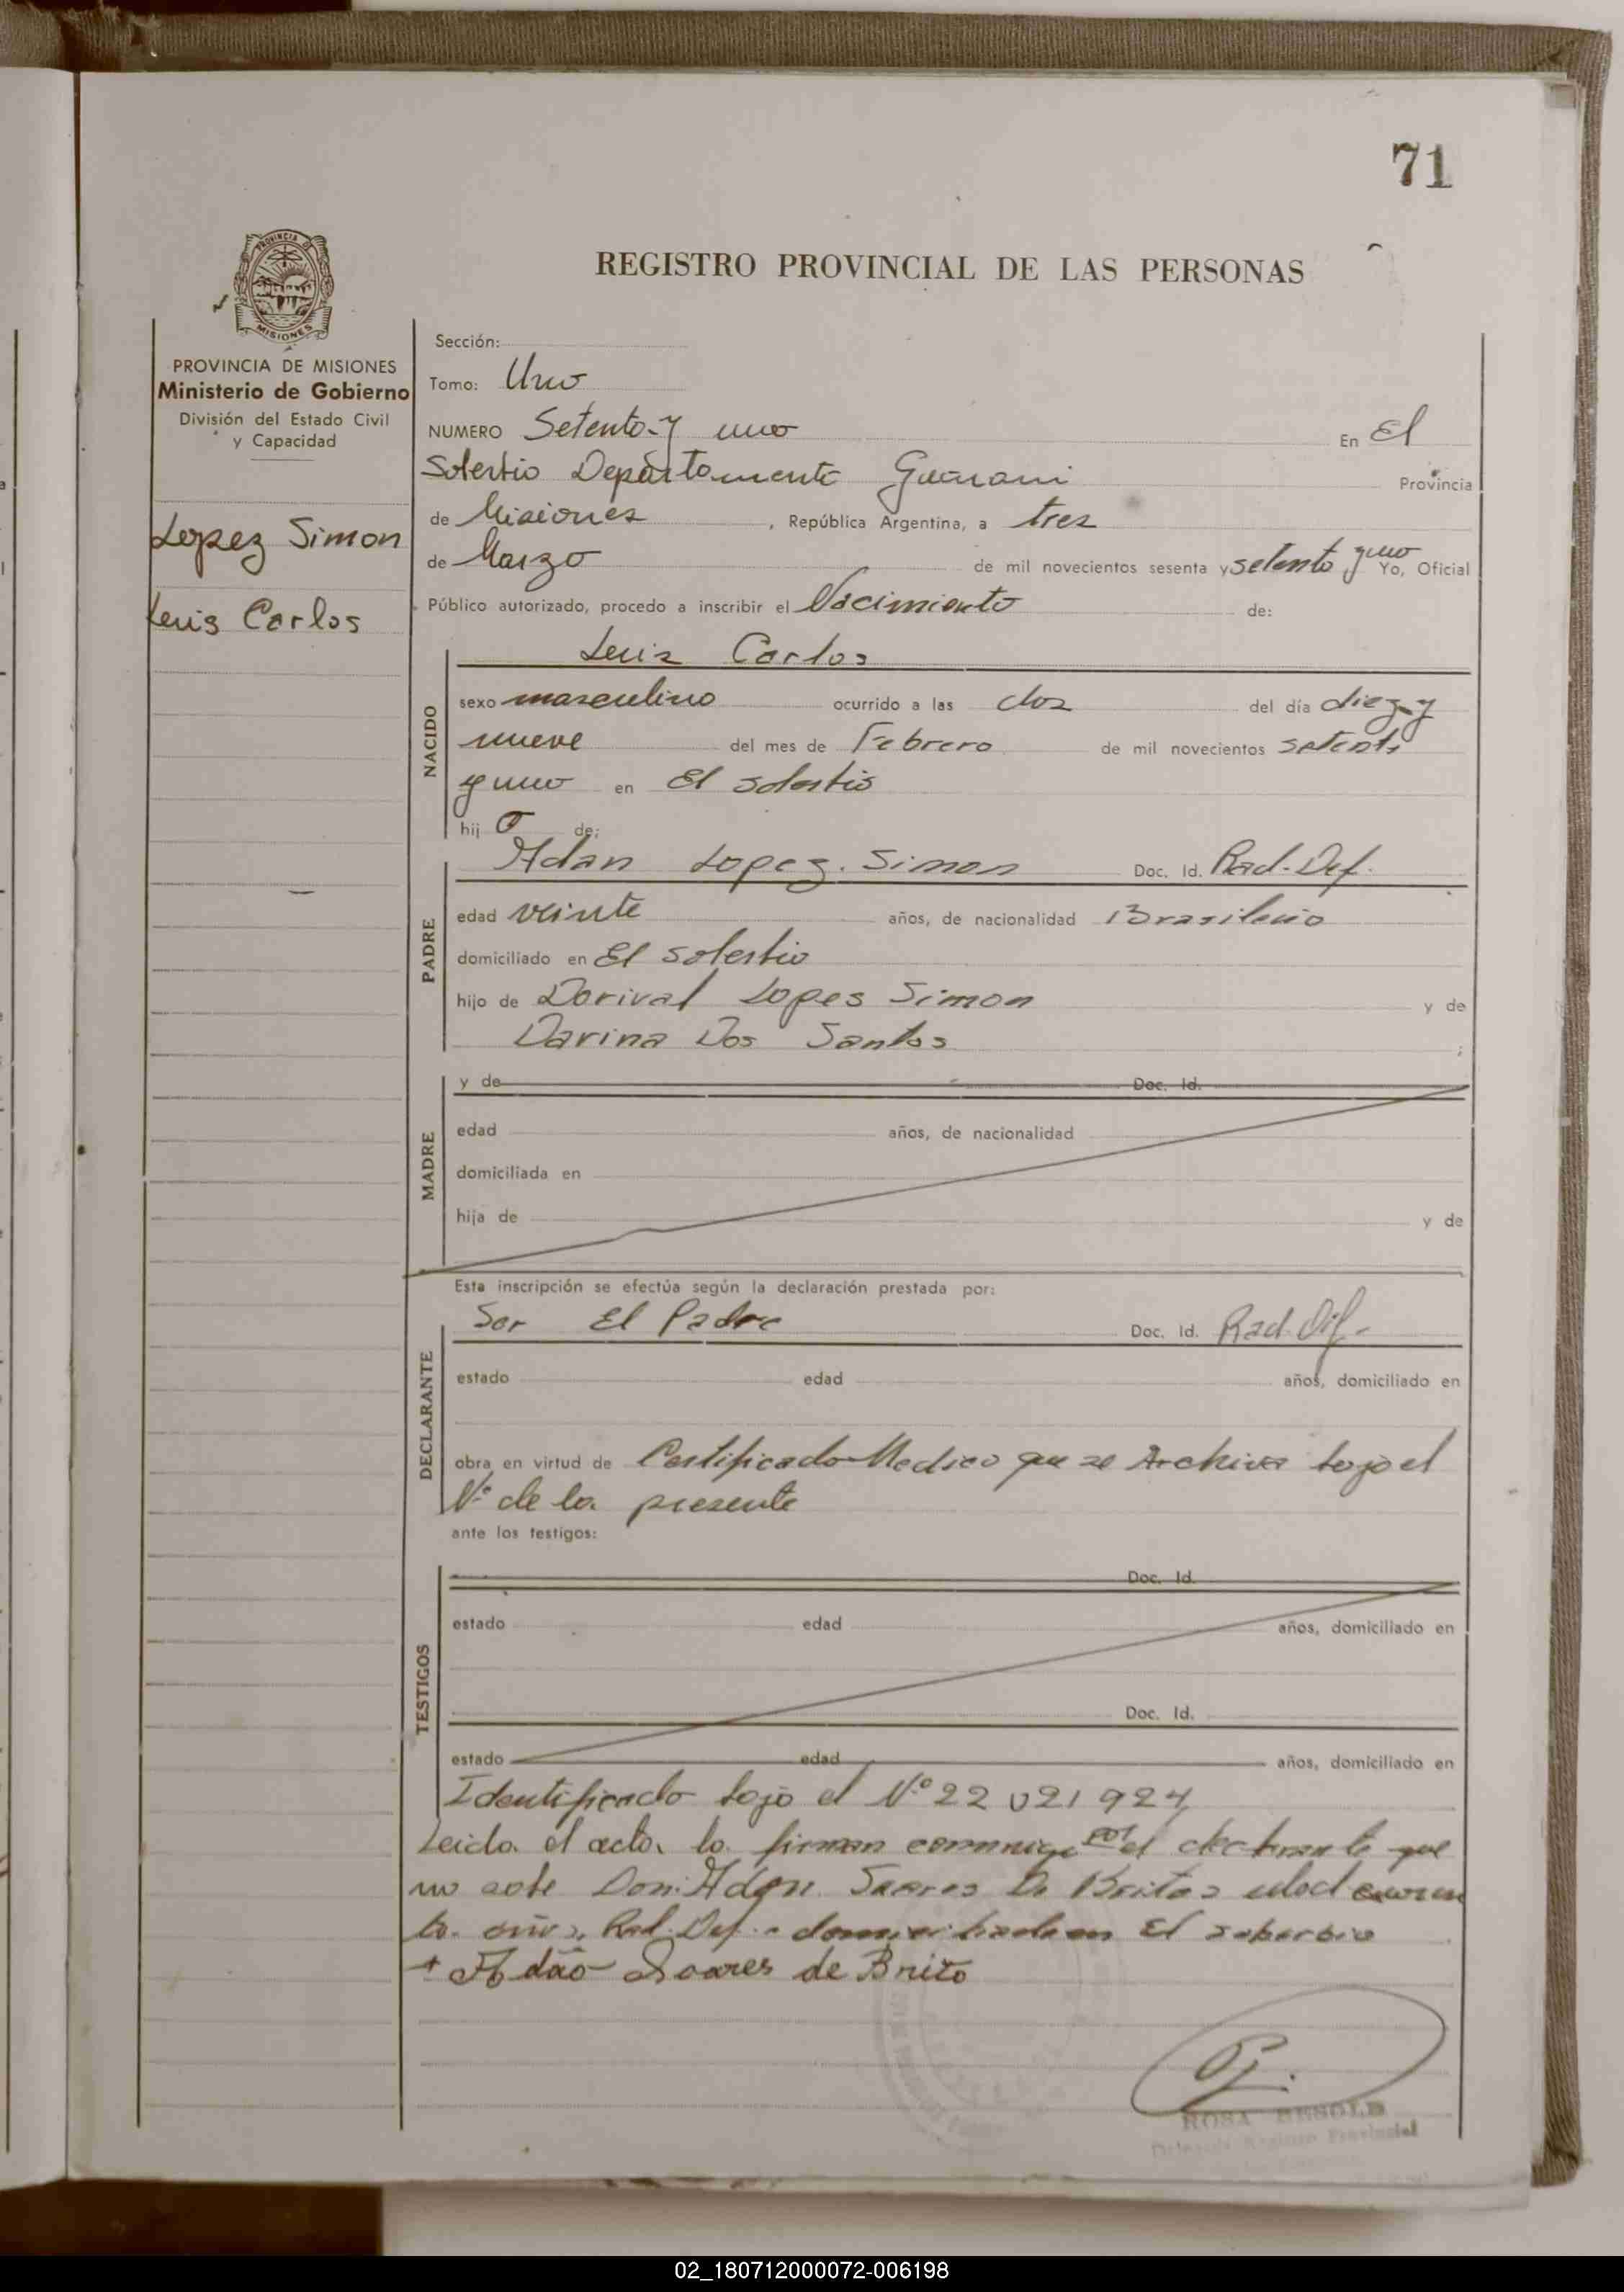 71
REGISTRO PROVINCIAL DE LAS PERSONAS
PROVINCIA DE
MISIONES
PROVINCIA DE MISIONES
Ministerio de Gobierno
División del Estado Civil
y Capacidad
Lopez Simon
Luis Carlos
Sección:
Tomo: Uno
NUMERO Setenta y uno En El
Soberbio Departamento Guarani Provincia
de Misiones, República Argentina, a tres
de Marzo de mil novecientos sesenta y setenta y uno Yo, Oficial
Público autorizado, procedo a inscribir el Nacimiento de:
Luis Carlos
NACIDO
sexo masculino ocurrido a las dos del día diez y
nueve del mes de Febrero de mil novecientos setenta
y uno en El Soberbio
hij o de:
PADRE
Adan Lopez Simon Doc. Id. Rad. Def.
edad veinte años, de nacionalidad Brasileño
domiciliado en El Soberbio
hijo de Dorival Lopes Simon y de
Darina Dos Santos ;
MADRE
y de Doc. Id.
edad años, de nacionalidad
domiciliada en
hija de y de
Esta inscripción se efectúa según la declaración prestada por:
DECLARANTE
Ser El Padre Doc. Id. Rad. Dif.
estado edad años, domiciliado en
obra en virtud de Certificado Medico que se Archiva bajo el
Nº de la presente
ante los testigos:
TESTIGOS
Doc. Id.
estado edad años, domiciliado en
Doc. Id.
estado edad años, domiciliado en
Identificado bajo el Nº 22 021 924
Leida el acta la firman conmigo por el declarante que
no sabe Don Adan Soares De Brito edad
años, Rad. Def. domiciliado en El soberbio
+ Adão Soares de Brito
ROSA
Registro Provincial
02_180712000072-006198